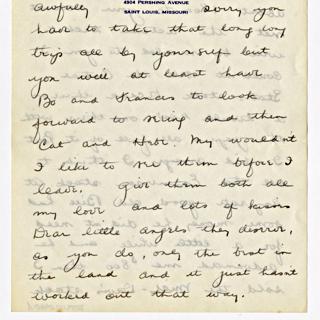 4904 PERSHING AVENUE
SAINT LOUIS, MISSOURI
awfully sorry you
have to take that long long
trip all by yourself but
you will at least have
Bo and Frances to look
forward to seeing and then
Cat and Hebe. My wouldn't
I like to see them before I
leave. give them both all
my love and lots of kisses
Dear little angels they deserve,
as you do, only the best in
the land and it just hasn't
worked out that way.